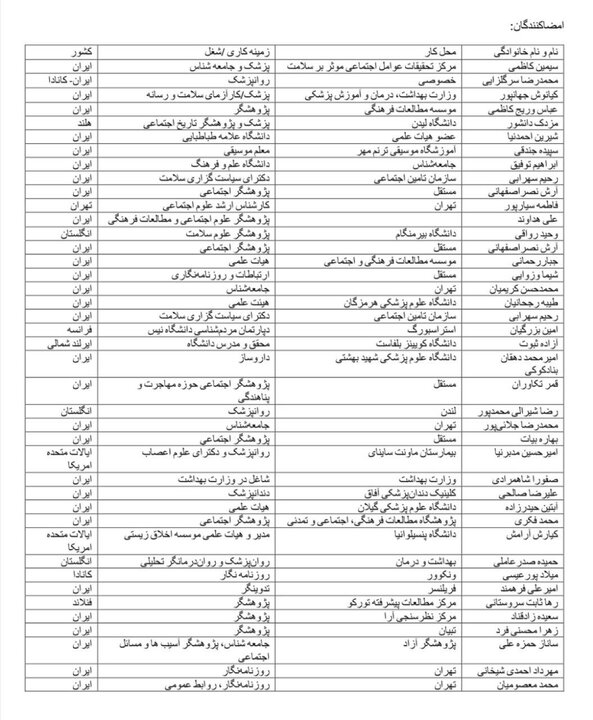 امضاکنندگان:
نام و نام خانوادگی محل کار زمینه کاری /شغل کشور
سیمین کاظمی مرکز تحقیقات عوامل اجتماعی موثر بر سلامت پزشک و جامعه شناس ایران
محمدرضا سرگلزایی خصوصی روانپزشک ایران- کانادا
کیانوش جهانپور وزارت بهداشت، درمان و آموزش پزشکی پزشک/کارازمای سلامت و رسانه ایران
عباس وریج کاظمی موسسه مطالعات فرهنگی پژوهشگر ایران
مزدک دانشور دانشگاه لیدن پزشک و پژوهشگر تاریخ اجتماعی هلند
شیرین احمدنیا عضو هیات علمی دانشگاه علامه طباطبایی ایران
سپیده جندقی آموزشگاه موسیقی ترنم مهر معلم موسیقی ایران
ابراهیم توفیق جامعه‌شناس دانشگاه علم و فرهنگ ایران
رحیم سهرابی سازمان تامین اجتماعی دکترای سیاست گزاری سلامت ایران
آرش نصراصفهانی مستقل پژوهشگر اجتماعی ایران
فاطمه سیارپور تهران کارشناس ارشد علوم اجتماعی تهران
علی هداوند پژوهشگر علوم اجتماعی و مطالعات فرهنگی ایران
وحید رواقی دانشگاه بیرمنگام پژوهشگر علوم سلامت انگلستان
آرش نصراصفهانی مستقل پژوهشگر اجتماعی ایران
جباررحمانی موسسه مطالعات فرهنگی و اجتماعی هیات علمی ایران
شیما وزوایی مستقل ارتباطات و روزنامه‌نگاری ایران
محمدحسن کریمیان تهران جامعه‌شناس ایران
طیبه رجحانیان دانشگاه علوم پزشکی هرمزگان هیئت علمی ایران
رحیم سهرابی سازمان تامین اجتماعی دکترای سیاست گزاری سلامت ایران
امین بزرگیان استراسبورگ دپارتمان مردم‌شناسی دانشگاه نیس فرانسه
آزاده ثبوت دانشگاه کویینز بلفاست محقق و مدرس دانشگاه ایرلند شمالی
امیرمحمد دهقان دانشگاه علوم پزشکی شهید بهشتی داروساز ایران
بنادکوکی
قمر تکاوران مستقل پژوهشگر اجتماعی حوزه مهاجرت و ایران
پناهندگی
رضا شیرالی محمدپور لندن روانپزشک انگلستان
محمدرضا جلائی‌پور تهران جامعه‌شناس ایران
بهاره بیات مستقل پژوهشگر اجتماعی ایران
امیرحسین مدبرنیا بیمارستان ماونت ساینای روانپزشک و دکترای علوم اعصاب ایالات متحده
امریکا
صفورا شاهمرادی وزارت بهداشت شاغل در وزارت بهداشت ایران
علیرضا صالحی کلینیک دندان‌پزشکی آفاق دندانپزشک ایران
آبتین حیدرزاده دانشگاه علوم پزشکی گیلان هیات علمی ایران
محمد فکری پژوهشگاه مطالعات فرهنگی، اجتماعی و تمدنی پژوهشگر اجتماعی ایران
کیارش آرامش دانشگاه پنسیلوانیا مدیر و هیات علمی موسسه اخلاق زیستی ایالات متحده
امریکا
حمیده صدرعاملی بهداشت و درمان روان‌پزشک و روان‌درمانگر تحلیلی انگلستان
میلاد پورعیسی ونکوور روزنامه نگار کانادا
امیرعلی فرهمند فریلنسر تدوینگر ایران
رها ثابت سروستانی مرکز مطالعات پیشرفته تورکو پژوهشگر فنلاند
سعیده زادقناد مرکز نظرسنجی آرا پژوهشگر ایران
زهرا محسنی فرد تبیان پژوهشگر ایران
ساناز حمزه علی پژوهشگر آزاد جامعه شناس، پژوهشگر آسیب ها و مسائل ایران
اجتماعی
مهرداد احمدی شیخانی تهران روزنامه‌نگار ایران
محمد معصومیان تهران روزنامه‌نگار، روابط عمومی ایران